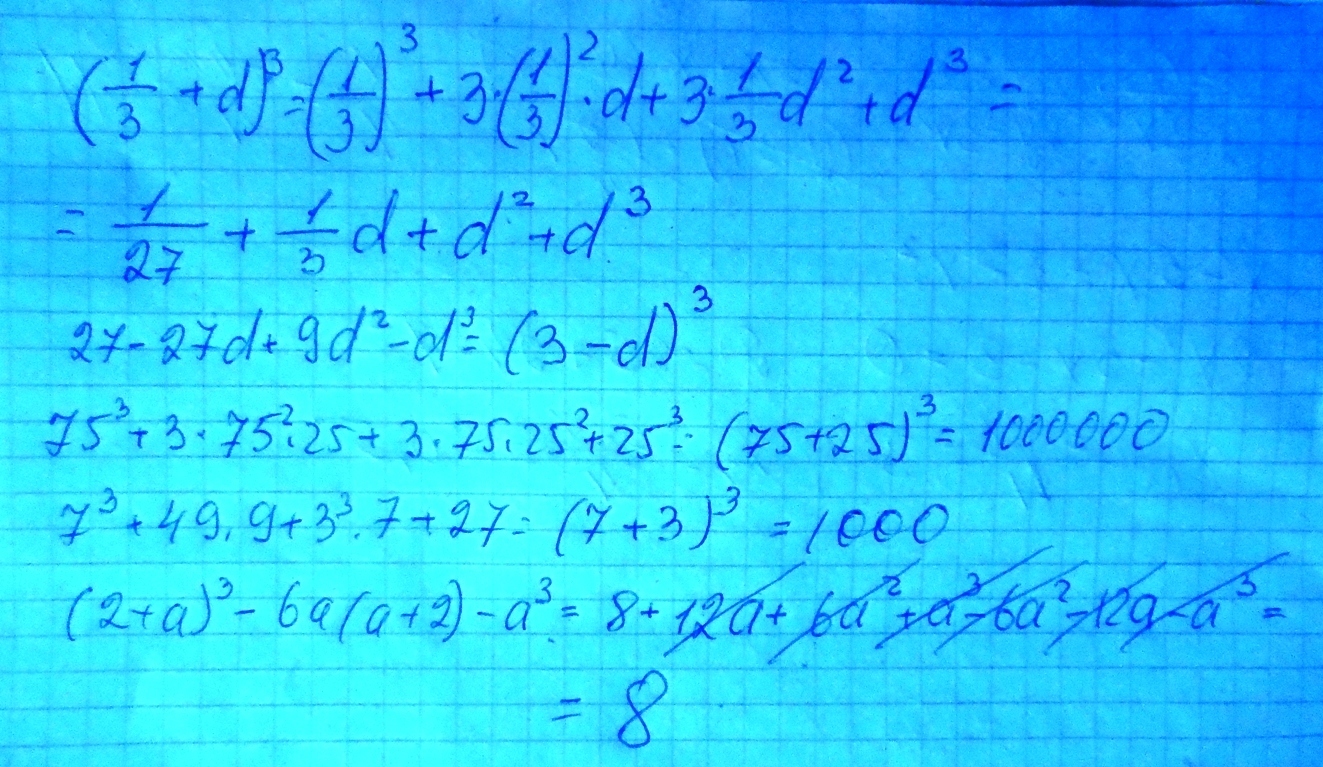 (1/3 + d)³ = (1/3)³ + 3·(1/3)²·d + 3·1/3 d² + d³ =
= 1/27 + 1/3 d + d² + d³
27 - 27d + 9d² - d³ = (3 - d)³
75³ + 3·75²·25 + 3·75·25² + 25³ = (75 + 25)³ = 1000000
7³ + 49·9 + 3³·7 + 27 = (7 + 3)³ = 1000
(2 + a)³ - 6a(a + 2) - a³ = 8 + 12a + 6a² + a³ - 6a² - 12a - a³ =
= 8